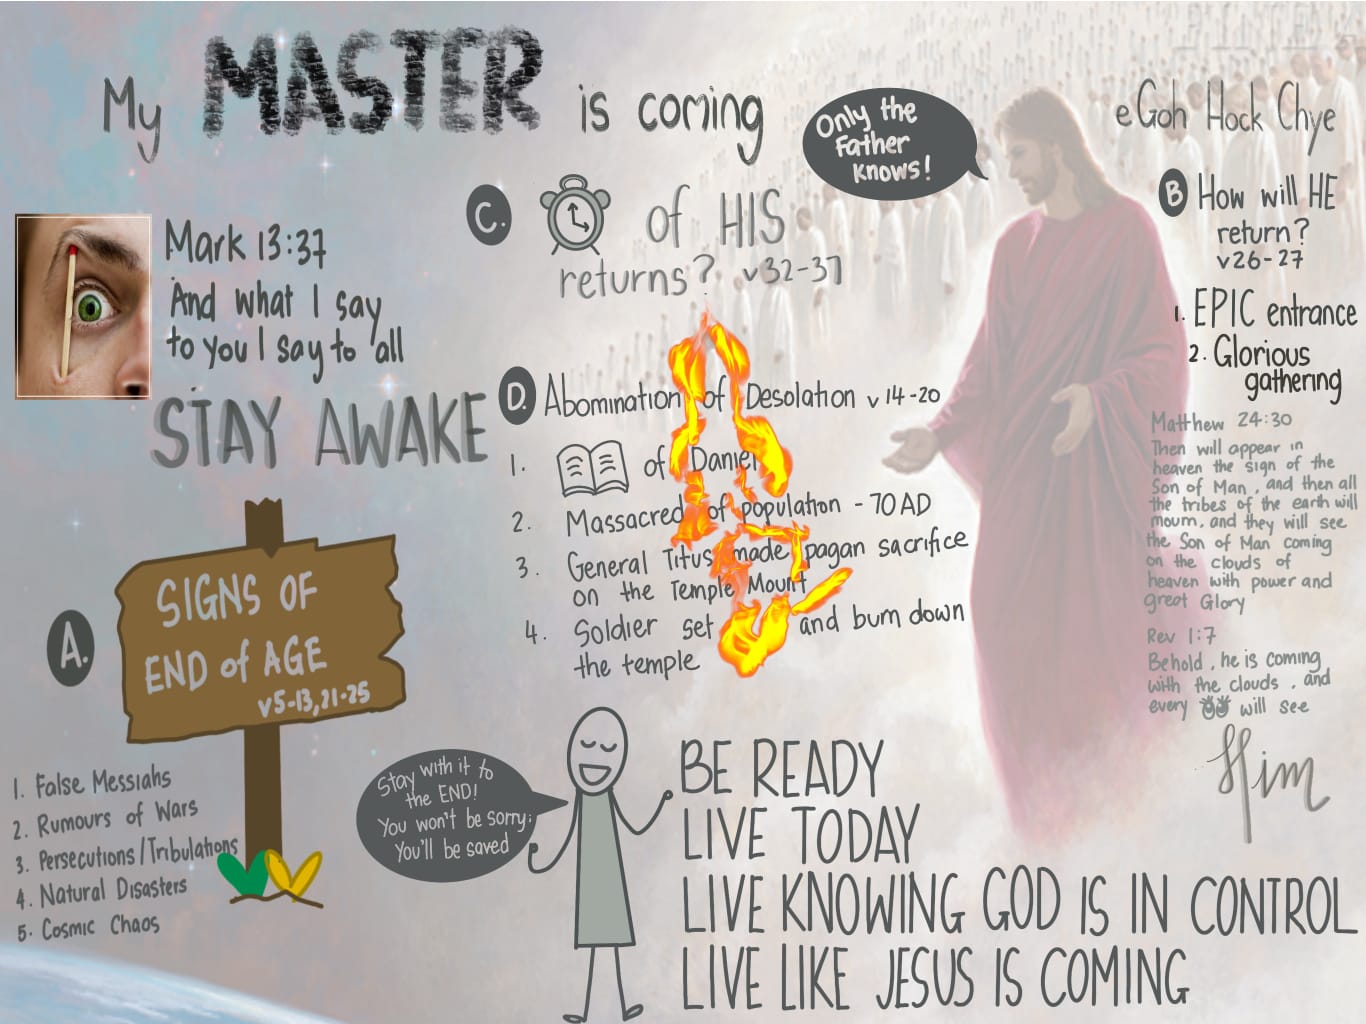 My MASTER is coming
eGoh Hock Chye
Only the
Father
knows!
Mark 13:37
And what I say
to you I say to all
STAY AWAKE
A.
SIGNS OF
END of AGE
v5-13, 21-25
1. False Messiahs
2. Rumours of Wars
3. Persecutions/Tribulations
4. Natural Disasters
5. Cosmic Chaos
B
How will HE
return?
v26-27
1. EPIC entrance
2. Glorious
gathering
Matthew 24:30
Then will appear in
heaven the sign of the
Son of Man, and then all
the tribes of the earth will
mourn, and they will see
the Son of Man coming
on the clouds of
heaven with power and
great Glory
Rev 1:7
Behold, he is coming
with the clouds, and
every will see
Him
C.
of HIS
returns? v32-37
D. Abomination of Desolation v14-20
1. of Daniel
2. Massacred of population - 70 AD
3. General Titus made pagan sacrifice
on the Temple Mount
4. Soldier set and burn down
the temple
Stay with it to
the END!
You won't be sorry.
You'll be saved
BE READY
LIVE TODAY
LIVE KNOWING GOD IS IN CONTROL
LIVE LIKE JESUS IS COMING